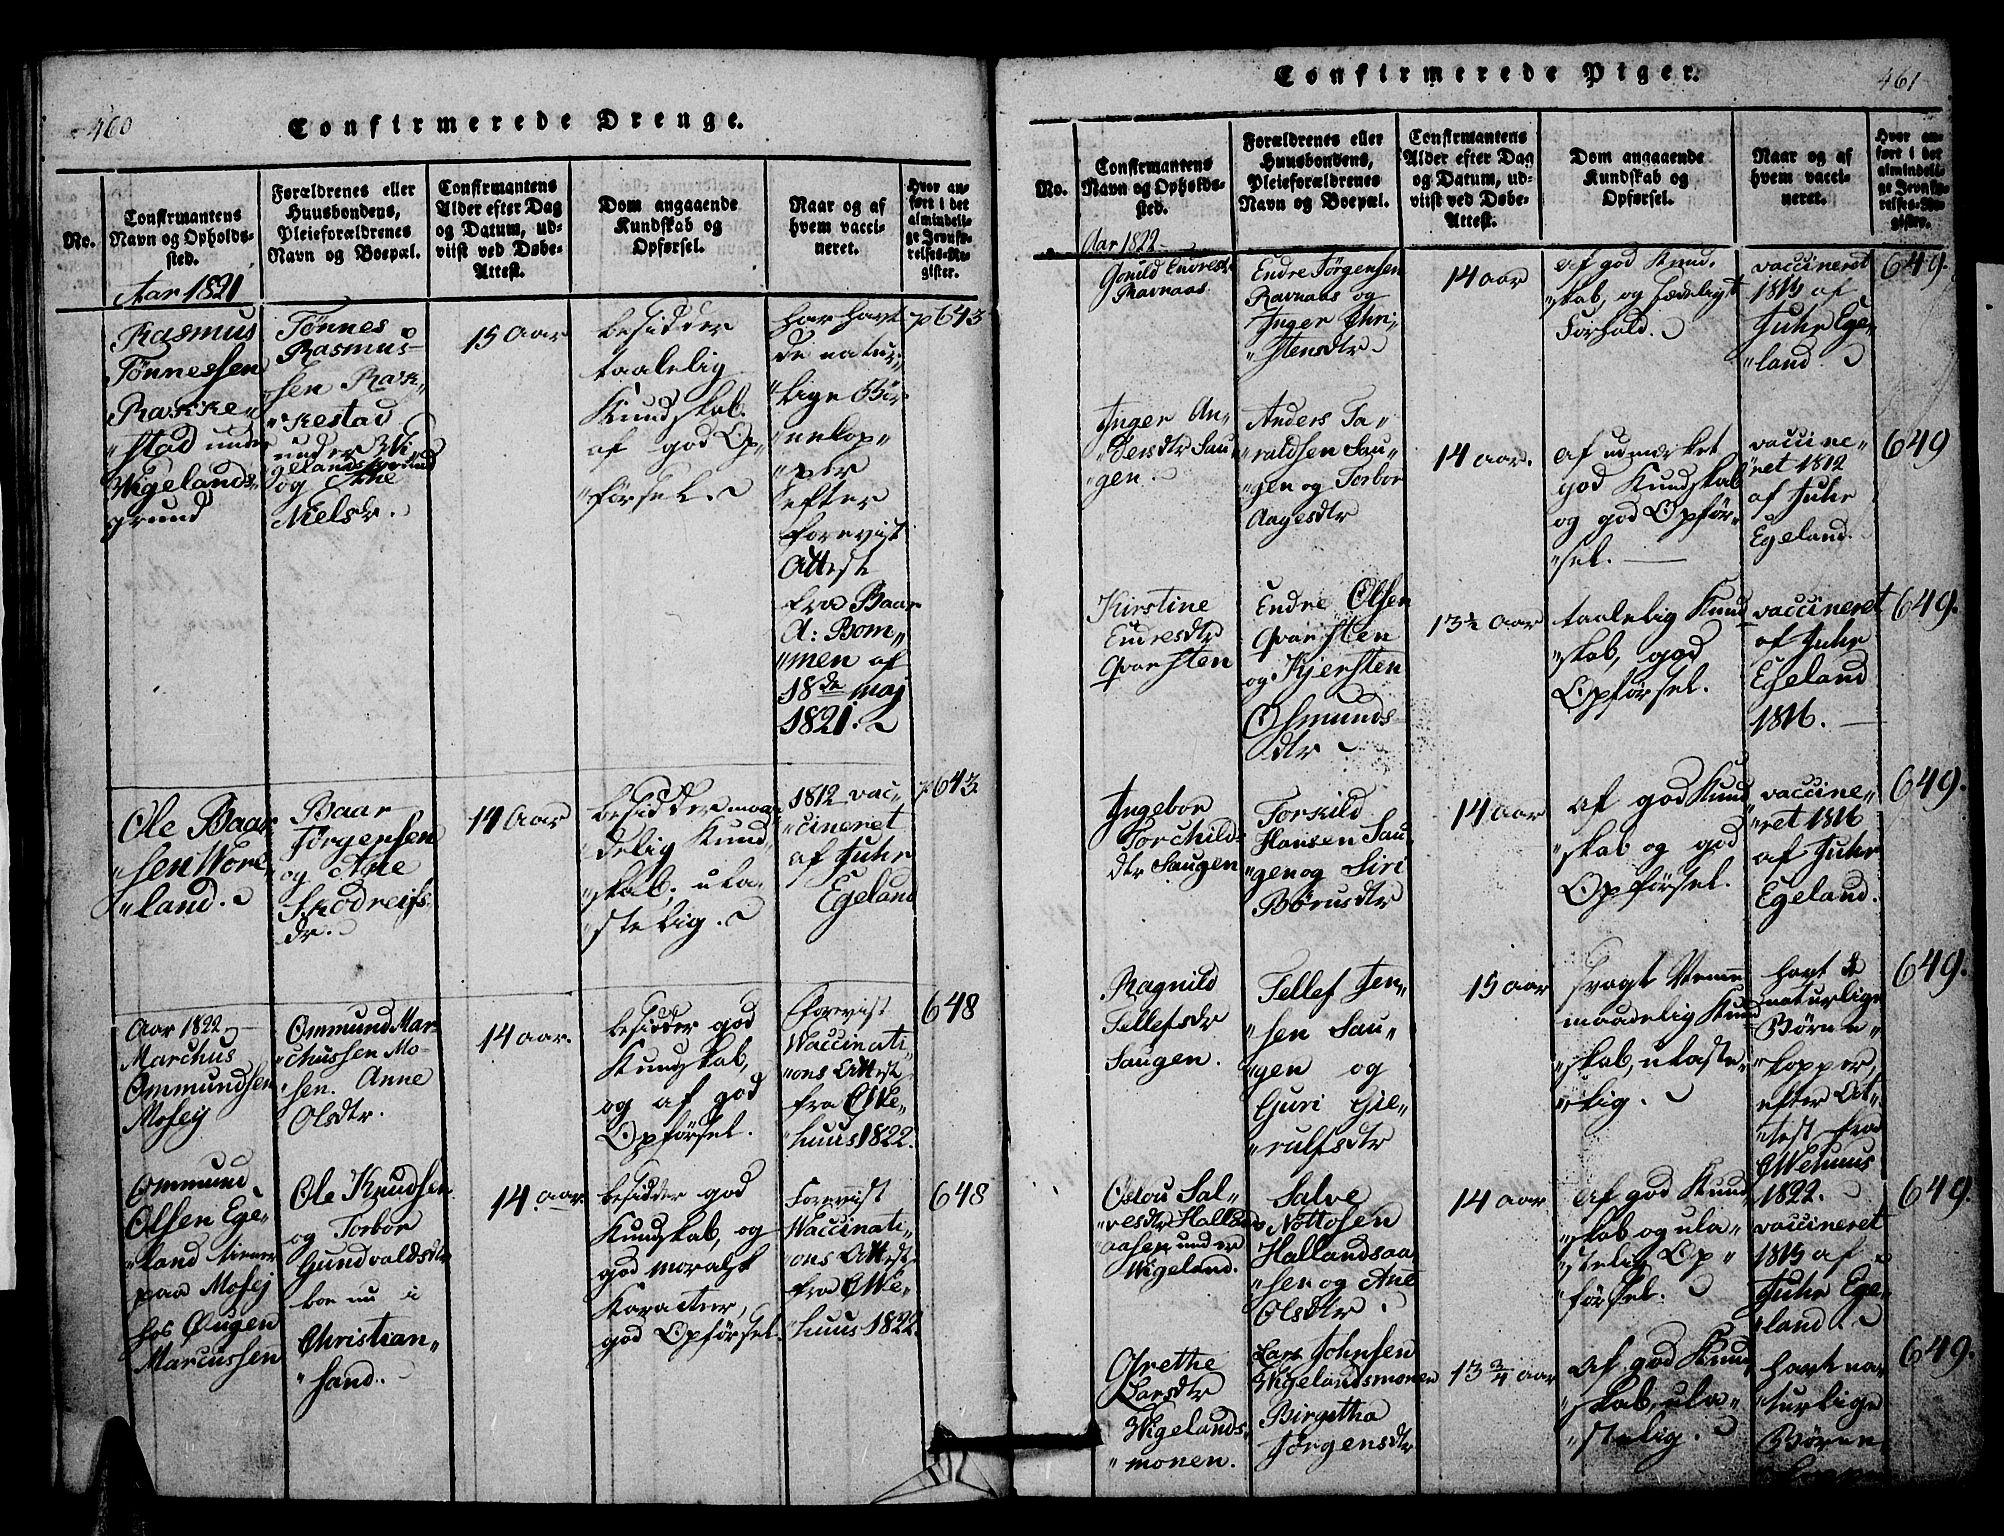 460
Confirmerede Drenge.
No.
Confirmantens
Navn og Opholds-
sted.
Forældrenes eller
Huusbondens,
Pleieforældrenes
Navn og Boepæl.
Confirmantens
Alder efter Dag
og Datum, ud-
viist ved Døbe-
Attest.
Dom angaaende
Kundskab og
Opførsel.
Naar og af
hvem vacci-
neret.
Hvor an-
ført i det
almindeli-
ge Jevnfø-
relses-Re-
gister.
Aar 1821
Rasmus
Tønnessen
Rakke„
„stad under
Wigelands-
grund
Tønnes
Rasmus-
sen Rak„
„kestad
under Wi
gelandsgrund
og Ane
Nielsdr.
15 Aar
besidder
taalelig
Kundskab.
af god Op„
„førsel.
har havt
de natur„
„lige Bör„
„nekop„
„per
efter
forevist
Attest
fra Baar
A: Bom„
„men af
18de maj
1821.
p 643
Ole Baar
„sen Wore
„land.
Baar
Jörgensen
og Ane
Skodreifs
dr.
14 Aar
besidder maa„
delig Kund„
„skab, ula„
„stelig.
1812 vac„
„cineret
af Juhr
Egeland
p 643
Aar 1822
Marchus
Ommundsen
Mosej
Ommund Mar„
„chussen Mo-
„sen. Anne
Olsdtr.
14 aar.
besidder god
Kundskab,
og af god
Opførsel.
Forevist
Vaccinati„
„ons Attest
fra Ekke„
„huus 1822.
648
Ommund
Olsen Ege„
„land tiener
paa Mosej
hos Øugen
Marcussen
Ole Knudsen
og Torbor
Gundvaldsdtr
boe nu i
Christian„
„sand.
14 aar
besidder god
Kundskab, og
god moralsk
Karacteer,
god Opførsel.
Forevist
Vaccinati„
„ons Attest
fra
„huus 1822.
648
Confirmerede Piger.
461
No.
Confirmantens
Navn og Opholds-
sted.
Forældrenes eller
Huusbondens,
Pleieforældrenes
Navn og Boepæl.
Confirmantens
Alder efter Dag
og Datum, ud-
viist ved Døbe-
Attest.
Dom angaaende
Kundskab og
Opførsel.
Naar og af
hvem vacci-
neret.
Hvor an-
ført i det
almindeli-
ge Jevnfø-
relses-Re-
gister.
Aar 1822
Gonild Endresdr
Ravnaas
Endre Jørgensen
Ravnaas og
Inger Chri„
„stensdtr
14 aar
af god Kund„
„skab, og sædeligt
Forhold.
vaccineret
1815 af
Juhr Ege„
„land.
649.
Inger An„
„dersdtr Sau„
gen.
Anders Ta„
„raldsen Sau„
„gen og Torbor
Aagesdtr
14 aar.
af udmerket
god Kundskab
og god Opfør„
„sel.
vaccine„
„ret 1812
af Juhr
Egeland.
649
Kirstine
Endresdtr
Qvarsten
Endre Olsen
Qvarsten
og Kjersten
Osmunds
dtr
13½ aar
taalelig Kund
„skab, god
Opførsel.
vaccineret
af Juhr
Egeland
1816.
649.
Ingebor
Torchild„
dtr Saugen
Torkild
Hansen Sau„
„gen og Siri
Børusdtr
14 aar
af god Kund
„skab og god
Opførsel.
vaccine„
„ret 1816
af Juhr
Egeland.
649.
Ragnild
Tellefsdr
Saugen.
Tellef Jen„
„sen Sau„
„gen og
Guri Gie„
„rulfsdtr
15 aar
svagt Nemme
maadelig Kund
„skab, ulaste„
„lig.
havt de
naturlige
Börne„
„kopper,
efter At„
„test fra
1822.
649.
Oslou Sal„
„vesdtr Halland
„aasen under
Wigeland.
Salve
Nottosen
Hallandsaa
„sen og Ane
Olsdtr
14 aar
af god Kund„
„skab og ula„
„stelig Op„
„førsel.
vaccineret
1815 af
Juhr Ege„
„land.
649.
Grethe
Larsdtr
Wigelands„
„monen.
Lars Johnsen
Wigelandsmonen
Birgitha
Jørgensdtr
13 3/4 aar
af god Kund„
„skab, ula„
„stelig.
havt na„
„turlige
Bören„
649.